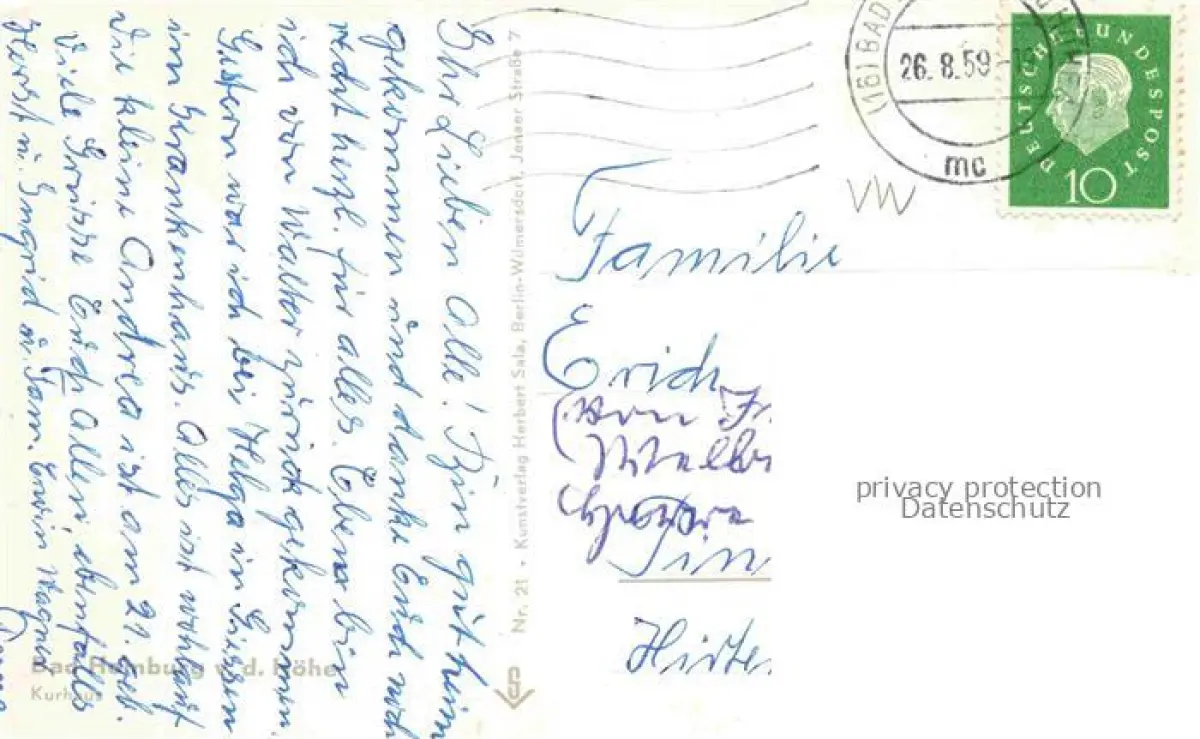 Ihr Lieben Alle! Bin gut heim
gekommen und danke Euch noch
recht herzl. für alles. Eben bin
ich von Walter zurück gekommen.
Gestern war ich bei Helga in Giessen
im Krankenhaus. Alles ist wohlauf
die kleine Andrea ist am 21. geb.
Viele Grüsse Euch Allen ebenfalls
Horst u. Ingrid u. Fam. Erwin Wagner
Bad Homburg v. d. Höhe
Kurhaus
Nr. 21 • Kunstverlag Herbert Sala, Berlin-Wilmersdorf, Jenaer Straße 7
(16) BAD
26. 8. 59
mc
DEUTSCHE BUNDESPOST
10
VW
Familie
Erich
(von Fr.
in
Hirte
privacy protection
Datenschutz